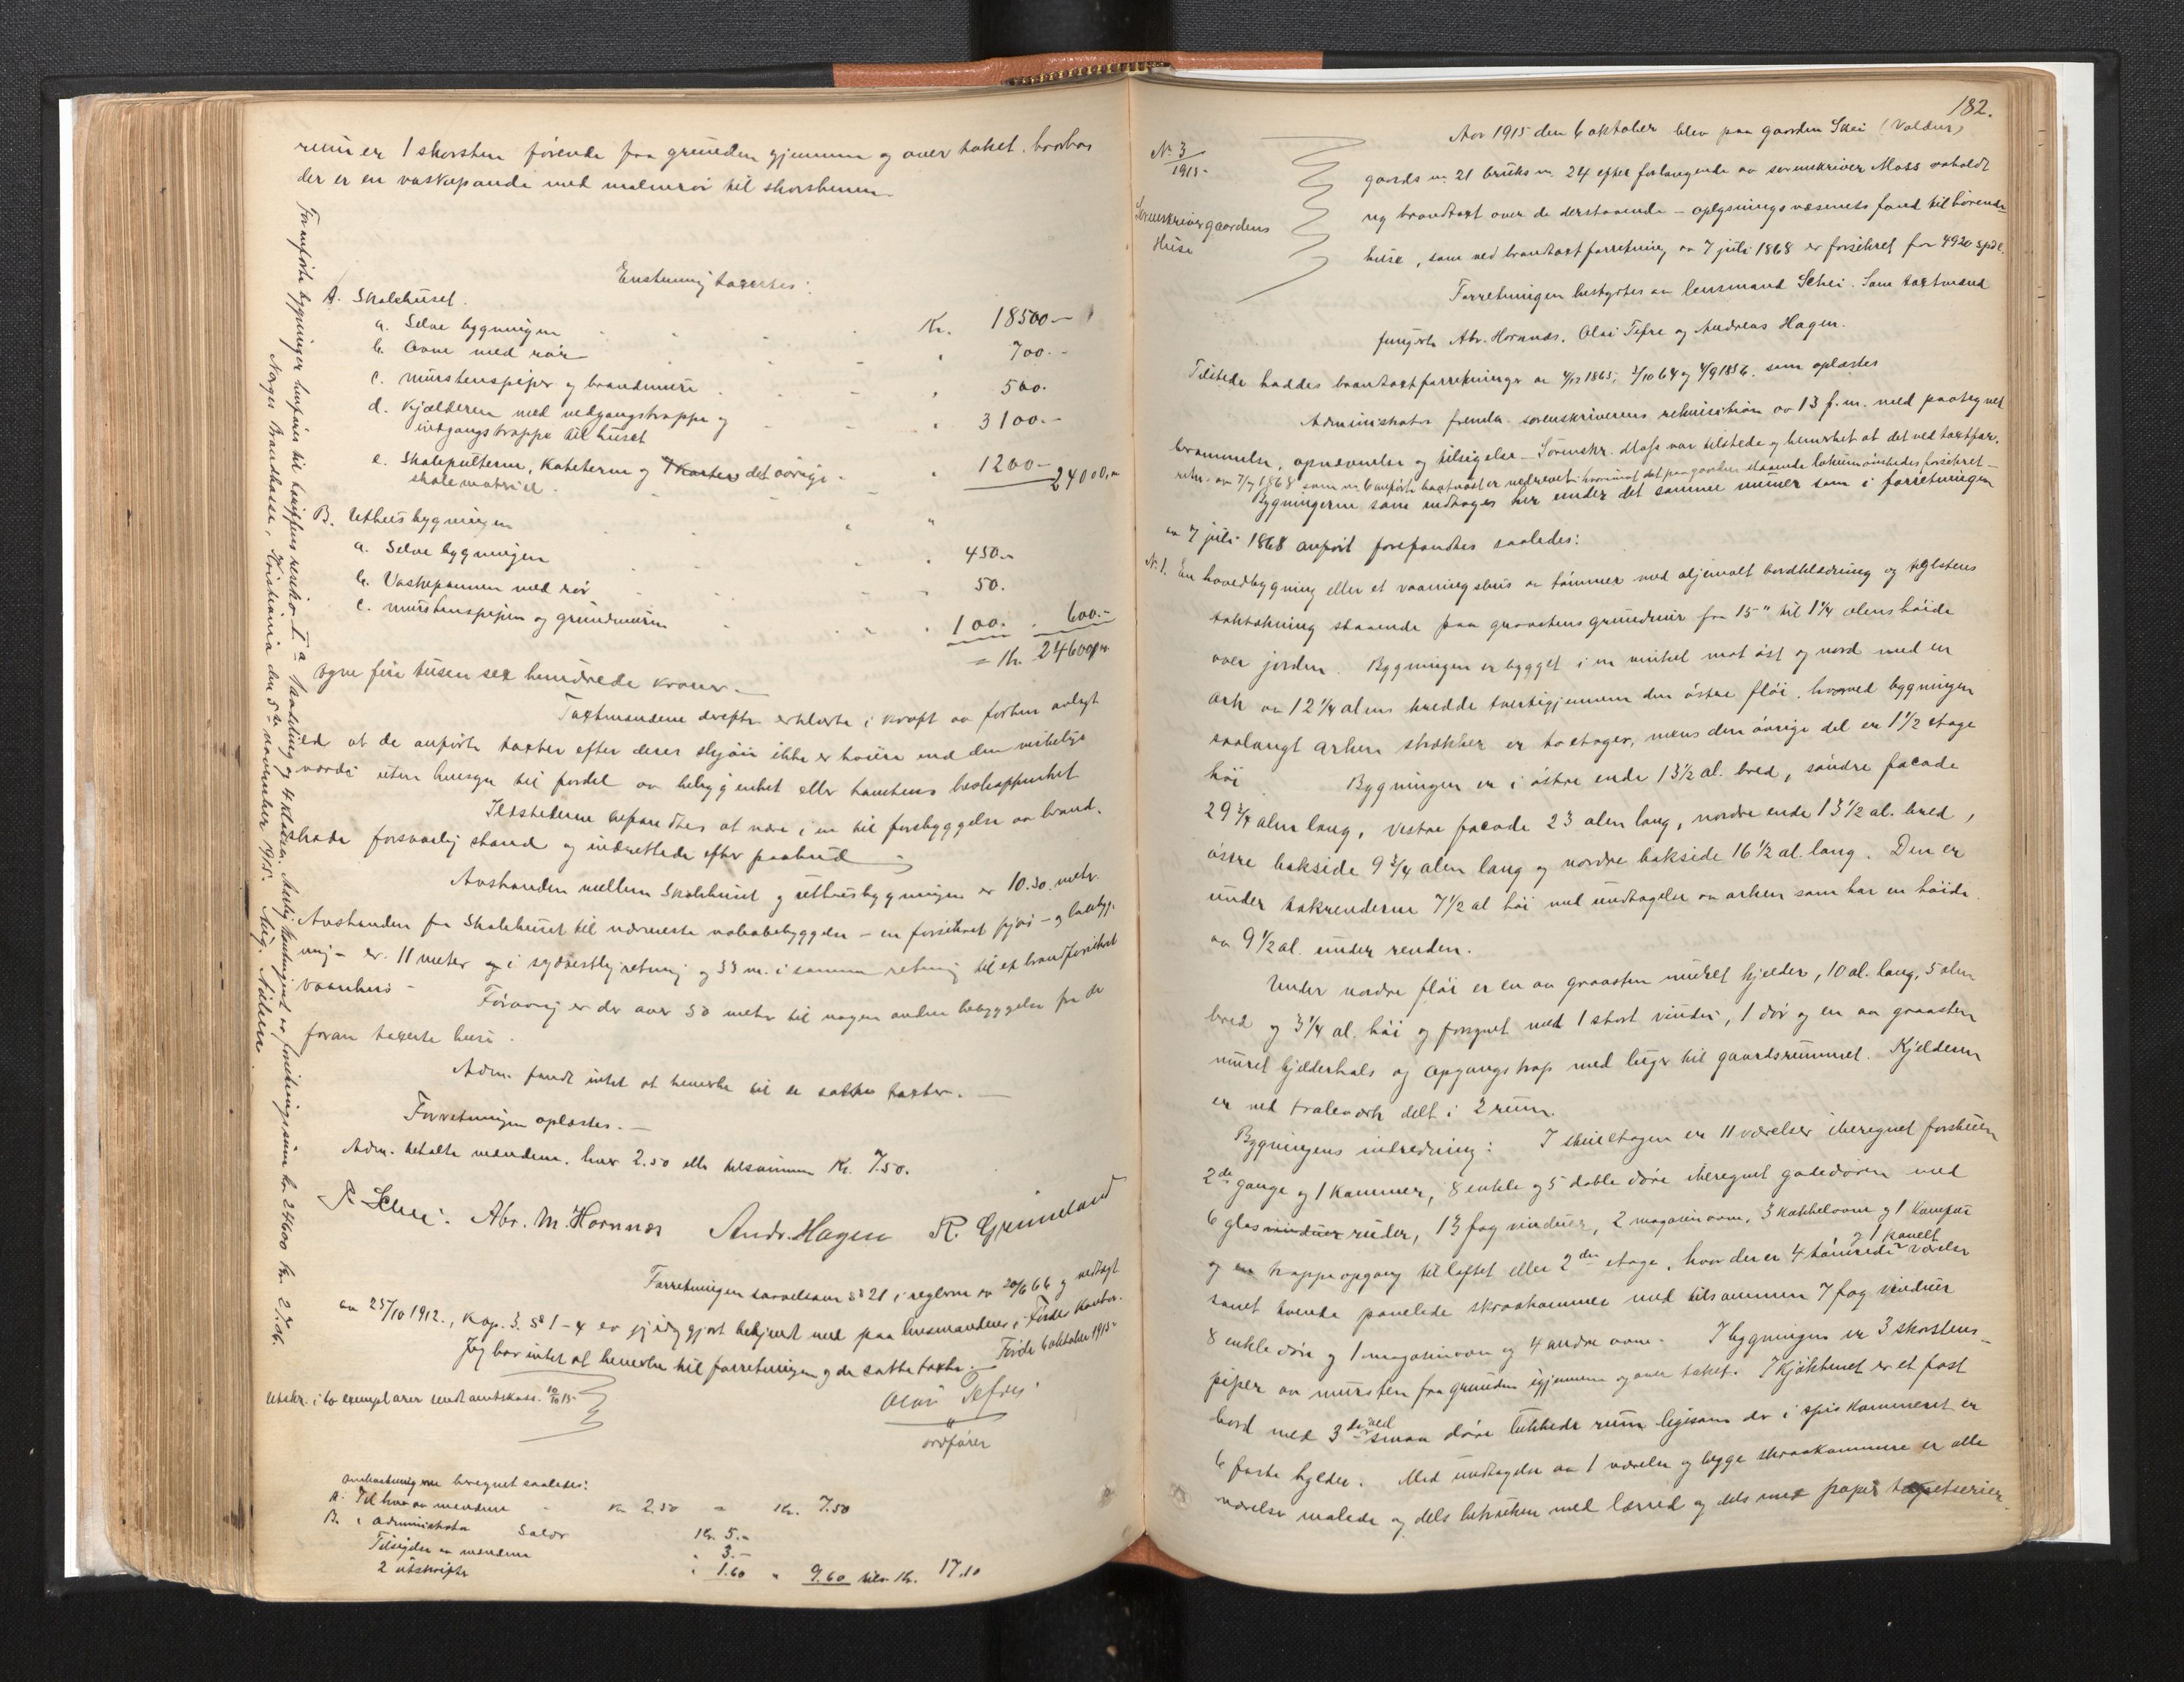 rum er 1 skorsten førende fra grunden gjennem og over taket. hvorhos
der er en vaskepande med malmrør til skorstenen
Enstemmig taxertes:
A. Skolehuset.
a. Selve bygningen Kr. 18500 —
b. Ovne med rør " 700.-
c. murstenspiper og brandmure " 500.
d. Kjælderen med nedgangstrappe og
indgangstrappe til huset " 3100.-
e. Skolepulterne, Kateterne og det øvrige
skolemateriel " 1200 — 24000,-
B. Uthusbygningen
a. Selve bygningen " 450.-
b. Vaskepannen med rør " 50.
c. murstenspipen og grundmuren " 100. . 600.-
= Kr. 24600,-
tyve fire tusen sex hundrede kroner. —
Taxtmændene derefter erklærte i kraft av forhen avlagt
ed at de anførte taxter efter deres skjøn ikke er høiere end den virkelige
værdi uten hensyn til fordel av beliggenhet eller tomtens beskaffenhet
Ildstederne befandtes at være i en til forebyggelse av brand-
skade forsvarlig stand og indrettede efter paabud —
Avstanden mellem Skolehuset og uthusbygningen er 10.30 meter.
Avstanden fra Skolehuset til nærmeste nabobebyggelse – en forsikret fjøs – og løebyg-
ning – er 11 meter i sydvestlig retning og 33 m. i samme retning til et brandforsikret
vaanhus –
Forøvrig er der over 50 meter til nogen anden bebyggelse fra de
foran taxerte huse.
Adm. fandt intet at bemerke til de satte taxter. —
Forretningen oplæstes. —
Adm. betalte mændene hver 2.50 eller tilsammen Kr. 7.50.
Schei. Abr. M. Hornnes Andr. Hagen R. Grimeland
Forretningen saavelsom §§ 21 i reglerne av 20/6 66 og vedtægt
av 25/10 1912., kap. 3. §§ 1–4 er jeg idag gjort bekjendt med paa lensmandens i Førde kontor.
Jeg har intet at bemerke til forretningen og de satte taxter. — Førde 6 oktober 1915
Olai Tefre
ordfører
Utskr. i to exemplarer sendt amtskass. 10/10 15
Omkostningerne beregnet saaledes:
A. Til hver av mændene Kr. 2.50 = Kr. 7.50
B. " administrator Salær Kr. 5.-
Tilsigelse av mændene " 3.-
2 utskrifter " 1.60 " 9.60 tils. Kr. 17.10
Foranførte bygninger henføres til hensigtens resiko I a 1 avdeling og 4 klasse. Aarlig kontingent av forsikringssum kr 24600 kr. 27.06.
Norges Brandkasse, Kristiania den 5te november 1915. Aug. Nielsen
182.
No 3
1915
Sorenskrivergaardens
Huse
Aar 1915 den 6 oktober blev paa gaarden Skei (Voldene)
gaards nr. 21 bruks nr. 24 efter forlangende av sorenskriver Moss avholdt
ny brandtaxt over de derstaaende – oplysningsvæsenets fond tilhørende
huse, som ved brandtaxtforretning av 7 juli 1868 er forsikret for 4920 spdl.
Forretningen bestyrtes av lensmand Schei. Som taxtmænd
fungerte Abr. Hornnes, Olai Tefre og Andreas Hagen.
Tilstede haddes brandtaxtforretninger av 4/12 1865, 3/10 64 og 4/9 1856. som oplæstes
Administrator fremla sorenskriverens rekvisition av 13 f.m. med paategnet
berammelse, opnævnelse og tilsigelse – Sorenskr. Moss var tilstede og bemerket at det ved taxtfor-
retn. av 7/7 1868 som nr. 6 anførte er nedrevet hvorimot det paa gaarden staaende forsikret –
Bygningerne som indtages her under det samme numer som i forretningen
av 7 juli 1868 anført forefandtes saaledes:
Nr. 1. En hovedbygning eller et vaaningshus av tømmer med oljemalt bordklædning og teglstens
taktækning staaende paa graastens grundmur fra 15" til 1 1/4 alens høide
over jorden. Bygningen er bygget i en vinkel mot øst og nord med en
ark av 12 1/4 alens bredde tvertigjennem den østre fløi. hvorved bygningen
saalangt arken strækker er to etager, mens den øvrige del er 1 1/2 etage
høi Bygningen er i østre ende 13 1/2 al. bred, søndre facade
29 3/4 alen lang, vestre facade 23 alen lang, nordre ende 13 1/2 al. bred,
østre bakside 9 3/4 alen lang og nordre bakside 16 1/2 al. lang. Den er
under takrenderne 7 1/2 al høi med undtagelse av arken som har en høide
av 9 1/2 al. under renden.
Under nordre fløi er en av graasten muret kjelder, 10 al. lang, 5 alen
bred og 3 1/4 al. høi og forsynet med 1 stort vindu, 1 dør og en av graasten
muret kjelderhals og opgangstrap med luger til gaardsrummet. Kjelderen
er ved traleverk delt i 2 rum.
Bygningens indredning: I stueetagen er 11 værelser iberegnet forstuen
2de gange og 1 kammer, 8 enkle og 5 doble døre iberegnet gatedøren med
6 glas ruder, 13 fag vinduer, 2 magasinovne, 3 kakkelovne og 1 komfur
og trappeopgang til loftet eller 2den etage, hvor der er 4 tømrede og 1 panelt værelse
samt tvende panelede skraakammer med tilsammen 7 fag vinduer
8 enkle døre og 1 magasinovn og 4 andre ovne. I bygningen er 3 skorstens-
piper av mursten fra grunden igjennem og over taket. I kjøkkenet er et fast
bord med 3de ved smaa døre lukkede rum ligesom der i spiskammeret er
6 faste hylder. Med undtagelse av 1 værelse og begge skraakammere er alle
værelser malede og dels betrukne med lærred og dels med papir tapetserier